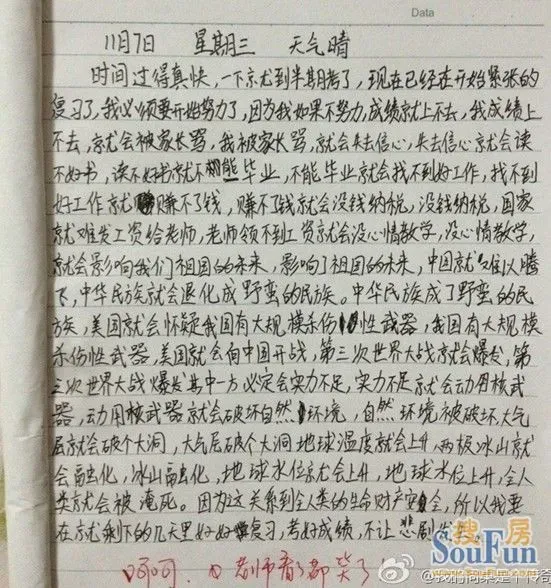 Data
11月7日 星期三 天气晴
时间过得真快,一下就到半期考了,现在已经在开始紧张的
复习了,我必须要开始努力了,因为我如果不努力,成绩就上不去,我成绩上
不去,就会被家长骂,我被家长骂,就会失去信心,失去信心就会读
不好书,读不好书就不能毕业,不能毕业就会找不到好工作,找不到
好工作就赚不了钱,赚不了钱就会没钱纳税,没钱纳税,国家
就难发工资给老师,老师领不到工资就会没心情教学,没心情教学,
就会影响我们祖国的未来,影响了祖国的未来,中国就难以腾
飞,中华民族就会退化成野蛮的民族。中华民族成了野蛮的民
族,美国就会怀疑我国有大规模杀伤性武器,我国有大规模
杀伤性武器,美国就会向中国开战,第三次世界大战就会爆发,第
三次世界大战爆发其中一方必定会实力不足,实力不足就会动用核武
器,动用核武器就会破坏自然环境,自然环境被破坏,大气
层就会破个大洞,大气层破个大洞地球温度就会上升,两极冰山就
会融化,冰山融化,地球水位就会上升,地球水位上升,全人
类就会被淹死。因为这关系到全人类的生命财产安全,所以我要
在就剩下的几天里好好复习,考好成绩,不让悲剧发
呵呵,老师看了都笑了
搜房
SouFun